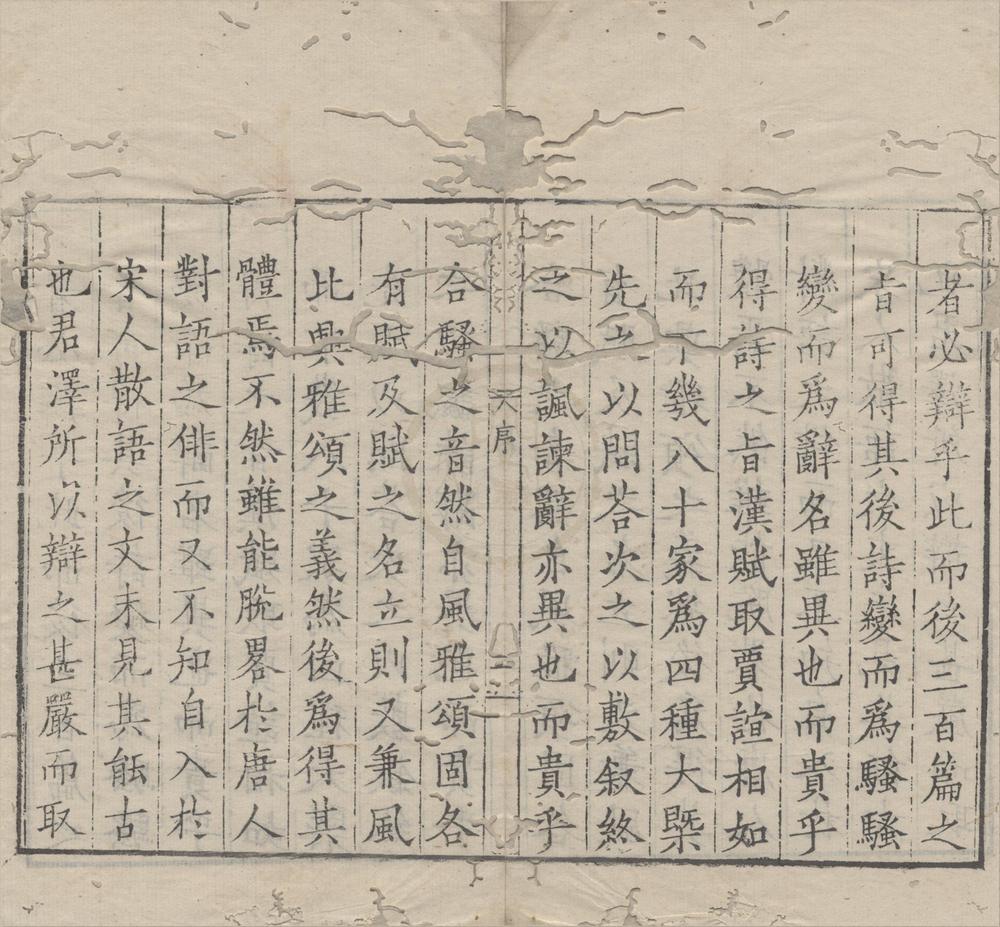 者必辯乎此而後三百篇之
旨可得其後詩變而爲騷騷
變而爲辭名雖異也而貴乎
得詩之旨漢賦取賈誼相如
而下幾八十家爲四種大槩
先之以問荅次之以敷叙終
之以諷諫辭亦異也而貴乎
序
合騷之音然自風雅頌固各
有賦及賦之名立則又兼風
比興雅頌之義然後爲得其
體焉不然雖能脫畧於唐人
對語之俳而又不知自入於
宋人散語之文未見其能古
也君澤所以辯之甚嚴而取